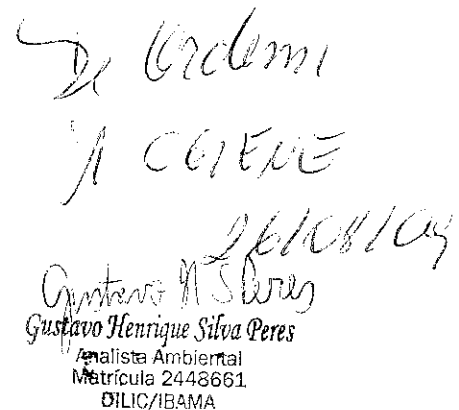 De Ordem
À CGENE
26/08/09
Gustavo H S Peres
Gustavo Henrique Silva Peres
Analista Ambiental
Matrícula 2448661
DILIC/IBAMA